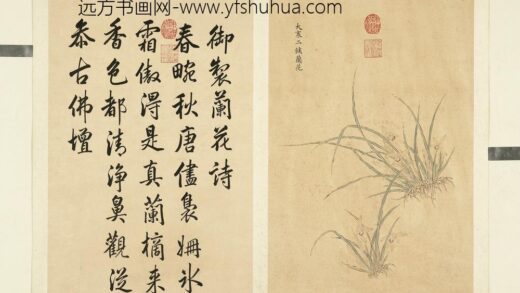 远方书画网-www.yfshuhua.com
大寒二候蘭花
御製蘭花詩
春畹秋唐儘裊姍氷
霜傲淂是真蘭摘来
香色都清淨鼻觀從
叅古佛壇